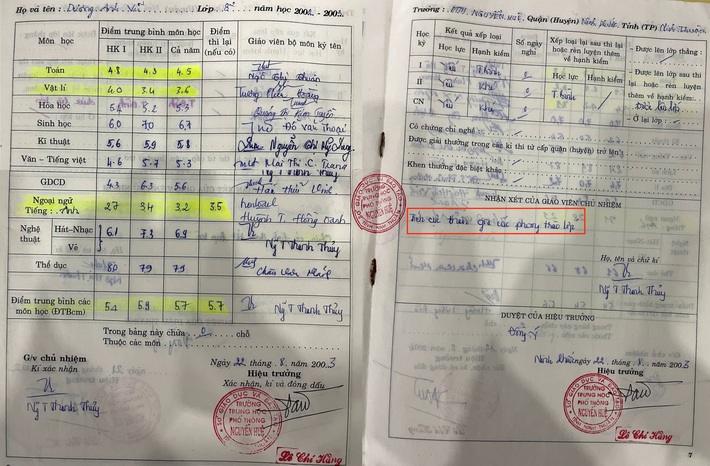 Họ và tên : Dương Anh Vũ Lớp 8 năm học 2002-2003
Môn học
Điểm trung bình môn học
HK I HK II Cả năm
Điểm thi lại (nếu có)
Giáo viên bộ môn ký tên
Toán 4.8 4.3 4.5
Vật lí 4.0 3.4 3.6
Hóa học 5.4 5.2 5.3
Sinh học 6.0 7.0 6.7 Đỗ Văn Thoại
Kĩ thuật 5.6 5.9 5.8
Văn – Tiếng việt 4.6 5.7 5.3 Mai Thị C. Trang
GDCD 4.3 6.3 5.6
Ngoại ngữ
Tiếng : Anh 2.7 3.4 3.2 3.5
Huỳnh T. Hồng Oanh
Nghệ thuật
Hát–Nhạc 6.1 7.3 6.9
Vẽ
Ng T Thanh Thủy
Thể dục 8.0 7.9 7.9
Điểm trung bình các môn học (ĐTBcm) 5.4 5.9 5.7 5.7 Ng T Thanh Thủy
Trong bảng này chữa 0 chỗ
Thuộc các môn :
G/v chủ nhiệm
Kí xác nhận
Ng T Thanh Thủy
Ngày 22 tháng 8 năm 2003
Hiệu trưởng
Xác nhận, kí và đóng dấu
TRƯỜNG
TRUNG HỌC
PHỔ THÔNG
NGUYỄN HUỆ
Lê Chí Hằng
Trường : PTTH NGUYỄN HUỆ Quận (Huyện) Ninh Phước Tỉnh (TP) Ninh Thuận
Học kỳ
Kết quả xếp loại
Học lực Hạnh kiểm
Số ngày nghỉ
Xếp loại lại sau thi lại hoặc rèn luyện thêm về hạnh kiểm
Học lực Hạnh kiểm
– Được lên lớp thẳng :
– Được lên lớp sau thi lại hoặc rèn luyện thêm về hạnh kiểm :
Được lên lớp
– Ở lại lớp :
I Yếu T.bình
II Yếu Khá
CN Yếu Khá T.bình
Có chứng chỉ nghề :
Được giải thưởng trong các kì thi từ cấp quận (huyện) trở lên :
Khen thưởng đặc biệt khác :
NHẬN XÉT CỦA GIÁO VIÊN CHỦ NHIỆM
Tích cực tham gia các phong trào lớp
Họ, tên và chữ kí
Ng T Thanh Thủy
SỞ GIÁO DỤC VÀ ĐÀO TẠO
TRƯỜNG
TRUNG HỌC
PHỔ THÔNG
NGUYỄN HUỆ
DUYỆT CỦA HIỆU TRƯỞNG
Đồng ý
Ninh Phước ngày 22 tháng 8 năm 2003
Hiệu trưởng
TRƯỜNG
TRUNG HỌC
PHỔ THÔNG
NGUYỄN HUỆ
Lê Chí Hằng
7